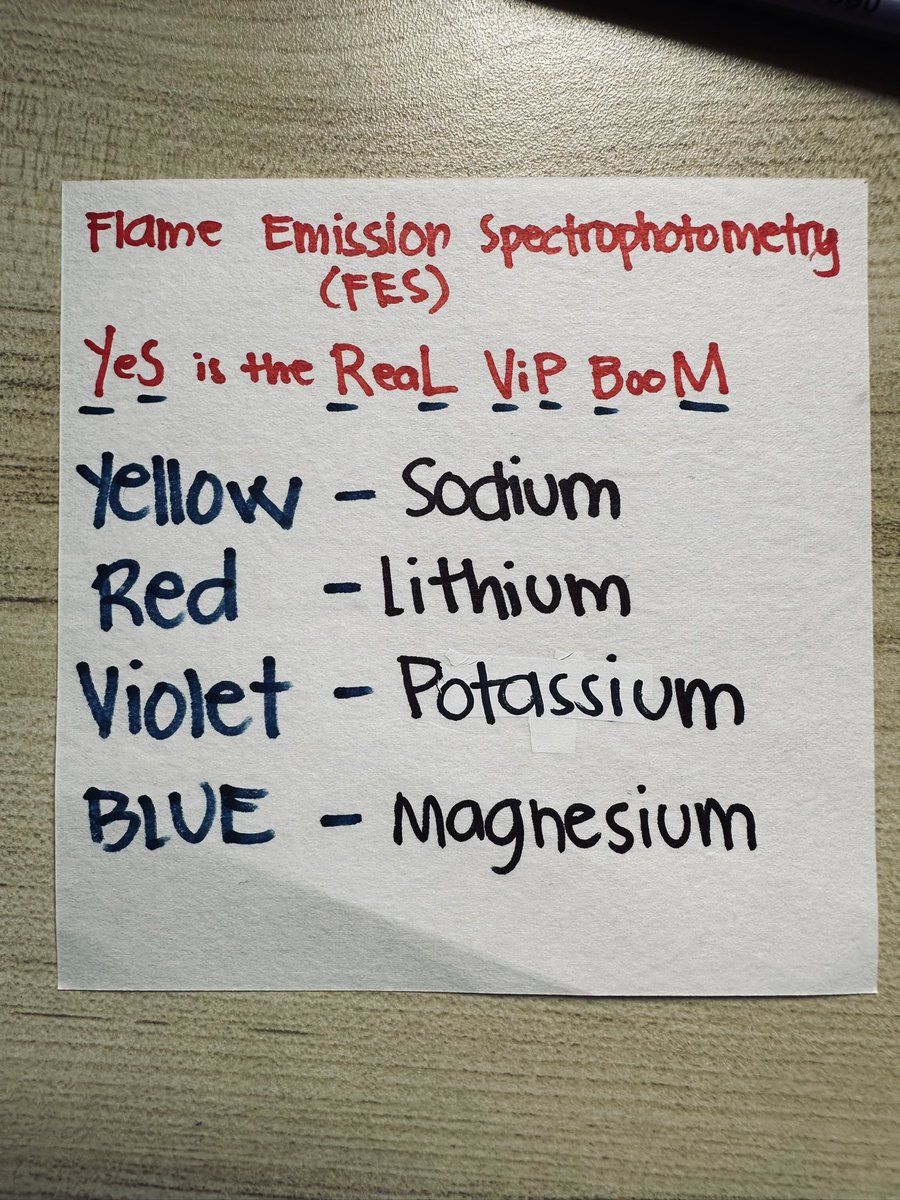 Flame Emission Spectrophotometry
(FES)
Yes is the ReaL ViP BooM
Yellow - Sodium
Red - Lithium
Violet - Potassium
BLUE - Magnesium